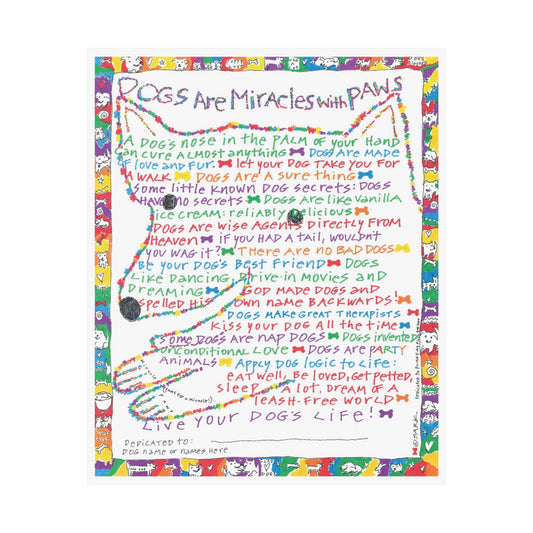 DOGS ARE MIRACLES WITH PAWS
A DOG'S NOSE IN THE PALM OF YOUR HAND
CAN CURE ALMOST ANYTHING DOGS ARE MADE
OF LOVE AND FUR. LET YOUR DOG TAKE YOU FOR
A WALK DOGS ARE A SURE THING
SOME LITTLE KNOWN DOG SECRETS: DOGS
HAVE NO SECRETS DOGS ARE LIKE VANILLA
ICE CREAM: RELIABLY DELICIOUS
DOGS ARE WISE AGENTS DIRECTLY FROM
HEAVEN IF YOU HAD A TAIL, WOULDN'T
YOU WAG IT? THERE ARE NO BAD DOGS
BE YOUR DOG'S BEST FRIEND DOGS
LIKE DANCING, DRIVE-IN MOVIES AND
DREAMING GOD MADE DOGS AND
SPELLED HIS OWN NAME BACKWARDS!
DOGS MAKE GREAT THERAPISTS
KISS YOUR DOG ALL THE TIME
SOME DOGS ARE NAP DOGS DOGS INVENTED
UNCONDITIONAL LOVE DOGS ARE PARTY
ANIMALS APPLY DOG LOGIC TO LIFE:
EAT WELL, BE LOVED, GET PETTED,
SLEEP A LOT, DREAM OF A
LEASH-FREE WORLD
LIVE YOUR DOG'S LIFE!
DEDICATED TO:
DOG NAME OR NAMES HERE
©SARK